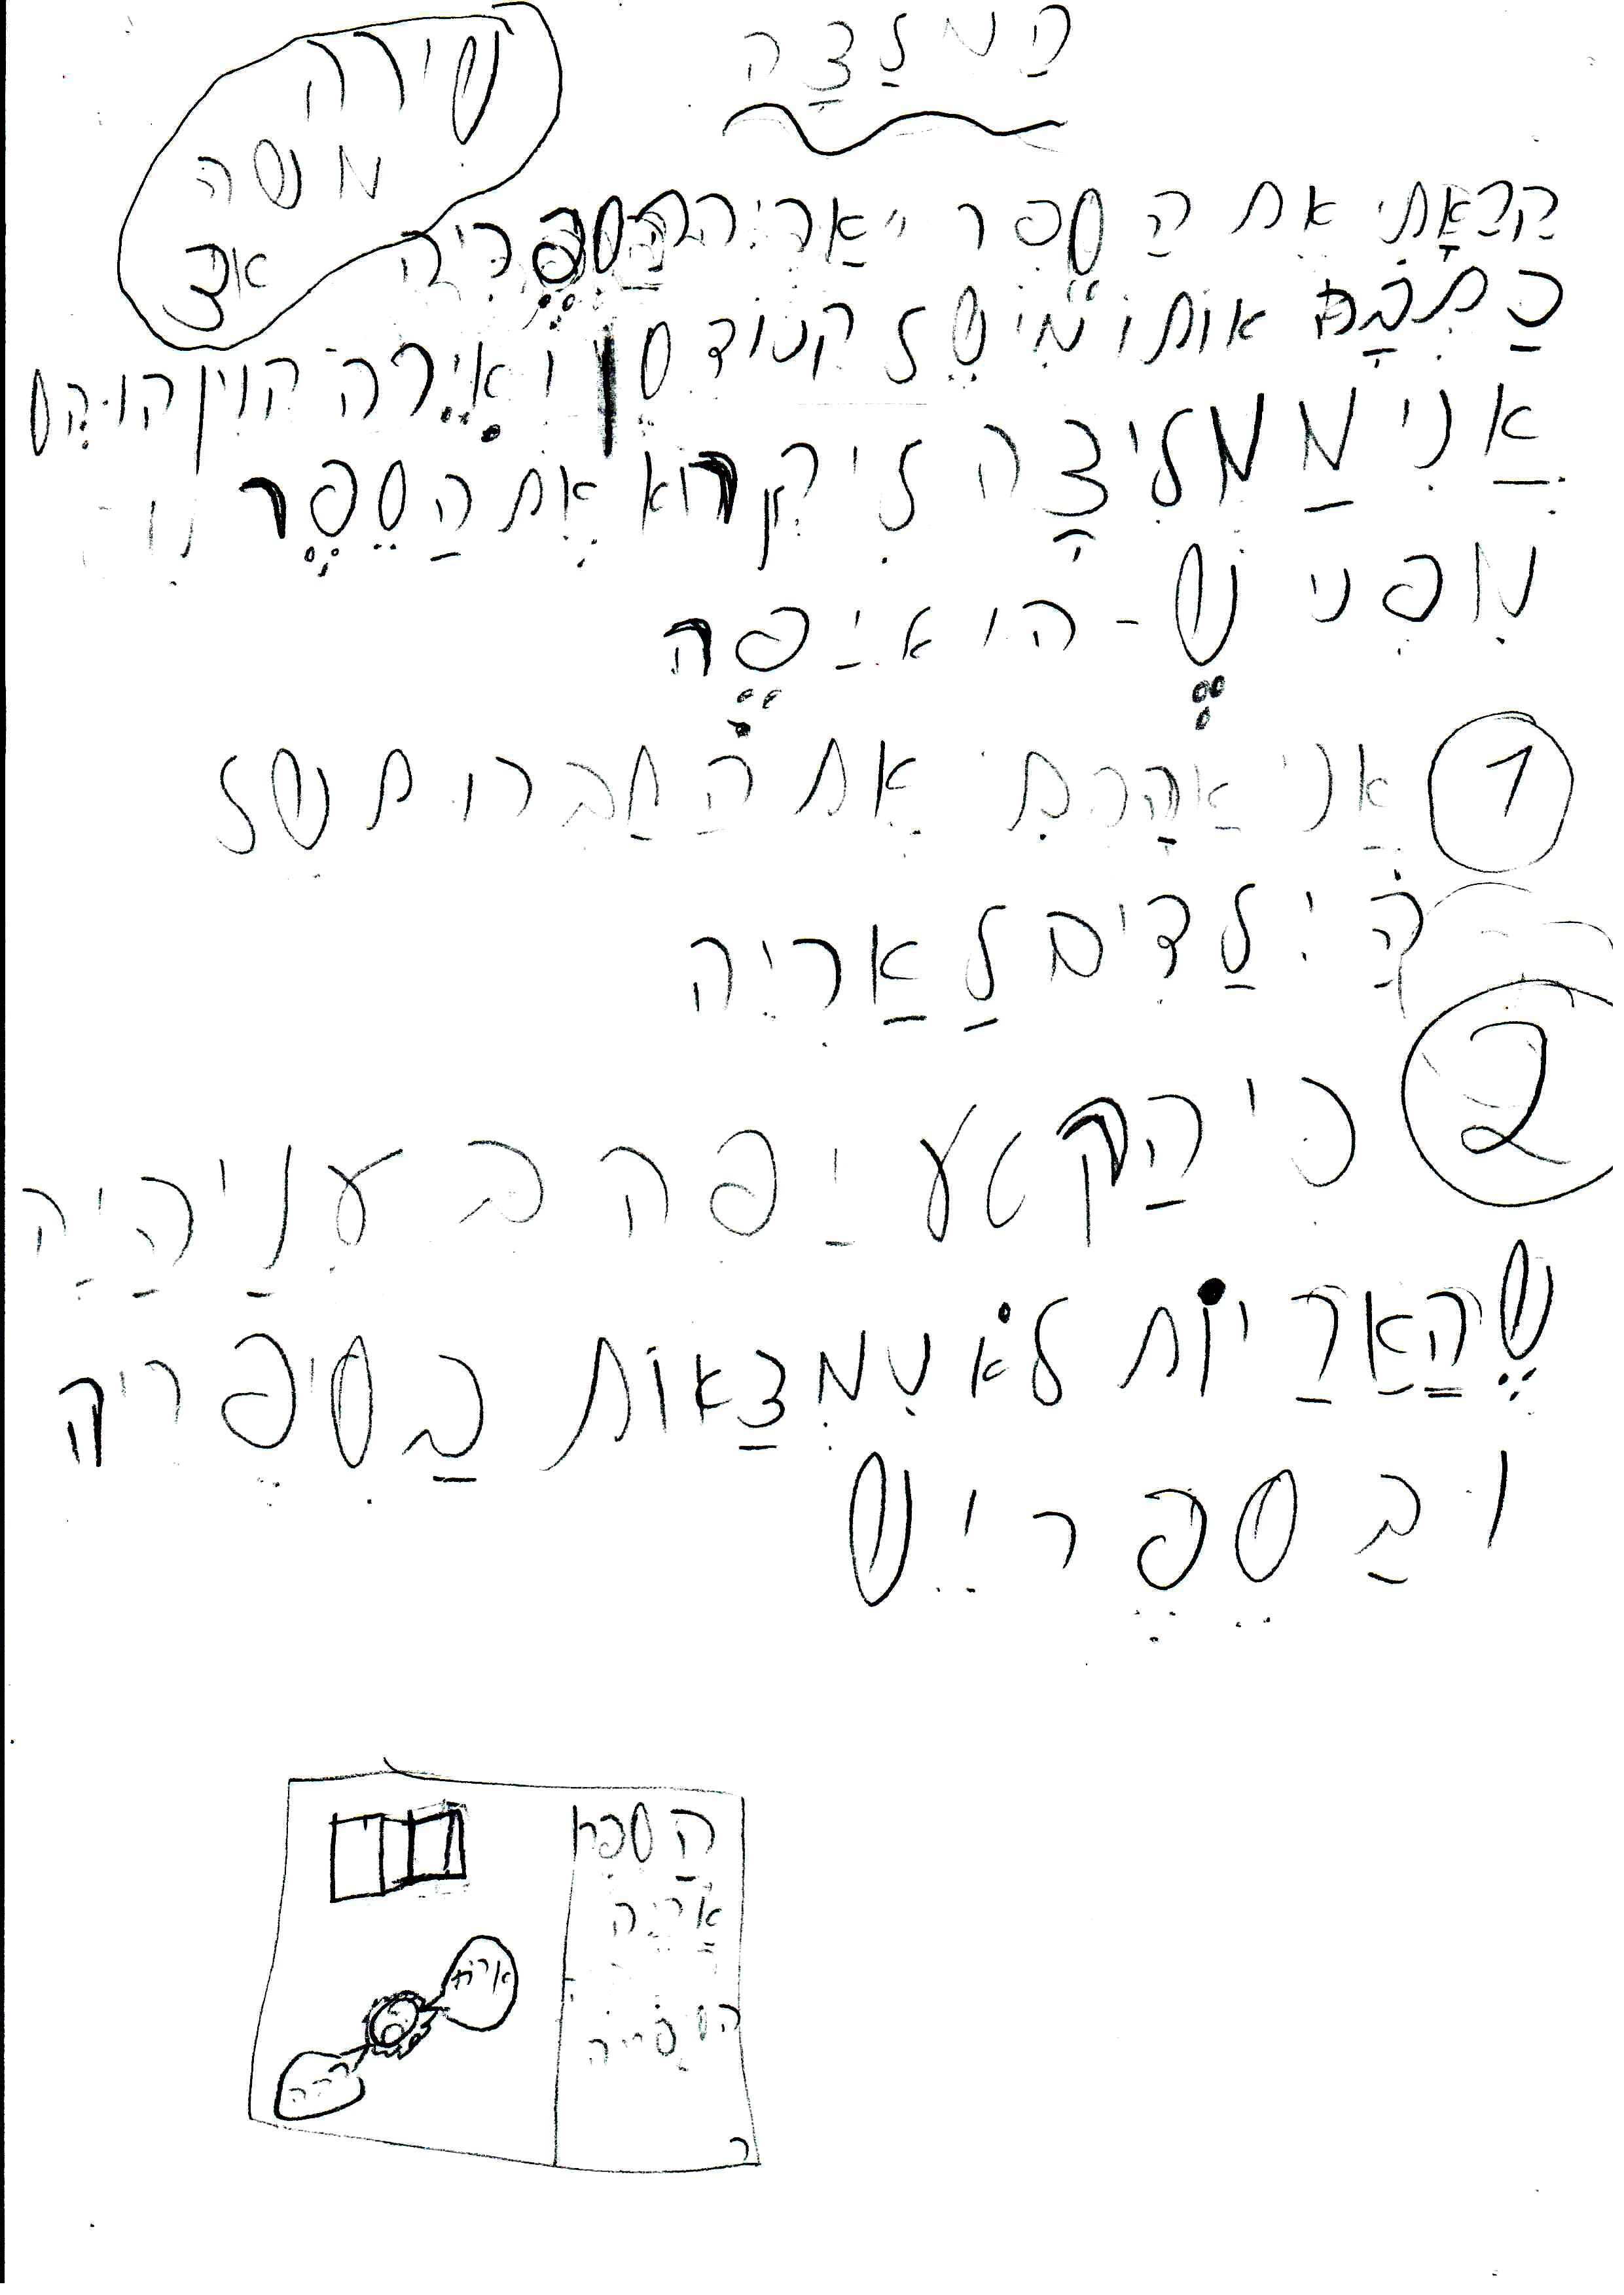 הַמלַצַה
שירה
מנשה
א3
קַרַאָתִי אֶת הַ ספר "אריה הסִפְֶריה
כַתִבָה אותו מִישֶל קנודסן ואִיֶרה קוין הוקֶס
אַנִי מַמְלִיצָה לִיקרוא אֶת הַסֵפֶר
מִפְנִי שֶ-הוא יַפֶה
1 אַנִי אַהַבְתִי אֶת הַחַברות שֶל
הַ יֶלַדִים לַאַריִה
2 כי הַקטע יַפה בְ עִנַיהַיַה
שֶהַאַרַיוֹת לֹא נִמְצַאות בַסיפֶריה
ובַ סֵפֶר יֵש
הַ ספר
אַריה
הסיפרייה